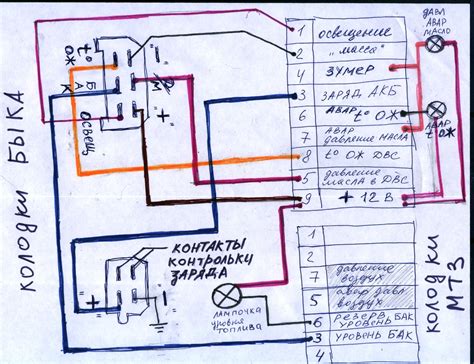 КОЛОДКИ БЫКА
t°
ОЖ
БАК
Освещ
-
+
1 освещение
2 "масса"
4 зумер
3 заряд АКБ
6 АВАР t° ОЖ
7 АВАР
давление масла
8 t° ОЖ ДВС
5 давление
масла в ДВС
9 + 12 В
ДАВЛ
АВАР
МАСЛО
АВАР
t° ОЖ
КОНТАКТЫ
КОНТРОЛЬКИ
ЗАРЯДА
+
-
лампочка
уровня
топлива
1
2
7 давление
воздух
5 авар давл
воздух
6 резерв. БАК
уровень
3 уровень БАК
4
КОЛОДКИ
МТЗ